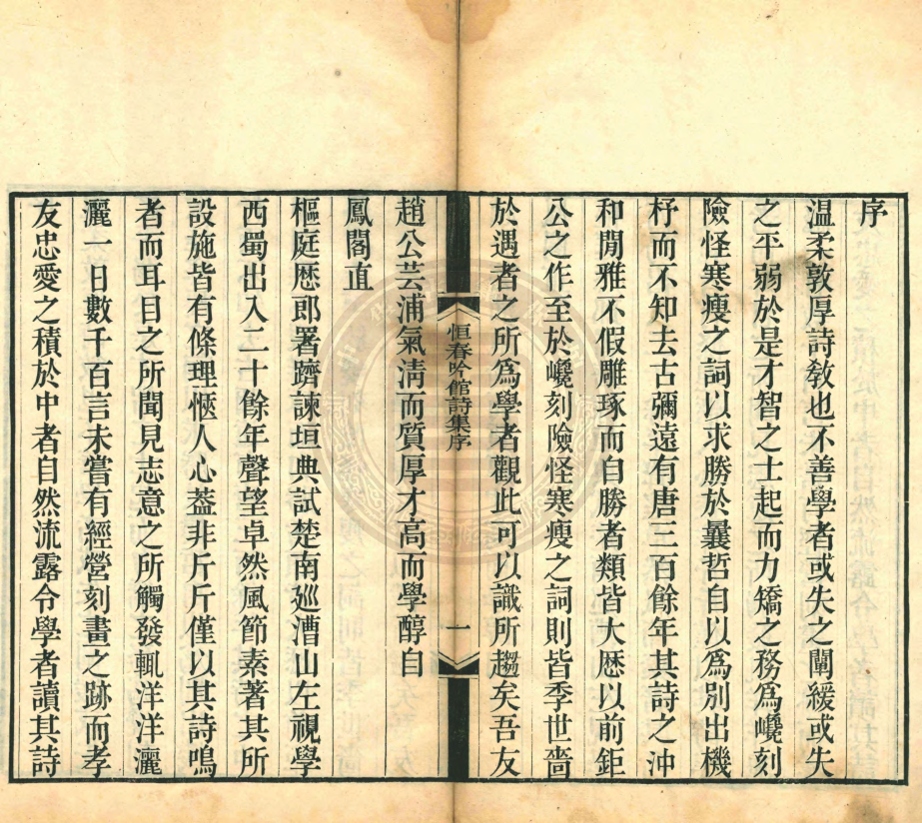 序
温柔敦厚詩敎也不善學者或失之闡緩或失
之平弱於是才智之士起而力矯之務爲巉刻
險怪寒瘦之詞以求勝於曩哲自以爲別出機
杼而不知去古彌遠有唐三百餘年其詩之沖
和閒雅不假雕琢而自勝者類皆大歴以前鉅
公之作至於巉刻險怪寒瘦之詞則皆季世嗇
於遇者之所爲學者觀此可以識所趨矣吾友
恒春吟館詩集序
一
趙公芸浦氣淸而質厚才高而學醇自
鳳閣直
樞庭歴郎署躋諫垣典試楚南廵漕山左視學
西蜀出入二十餘年聲望卓然風節素著其所
設施皆有條理愜人心葢非斤斤僅以其詩鳴
者而耳目之所聞見志意之所觸發輒洋洋灑
灑一日數千百言未嘗有經營刻畫之跡而孝
友忠愛之積於中者自然流露令學者讀其詩